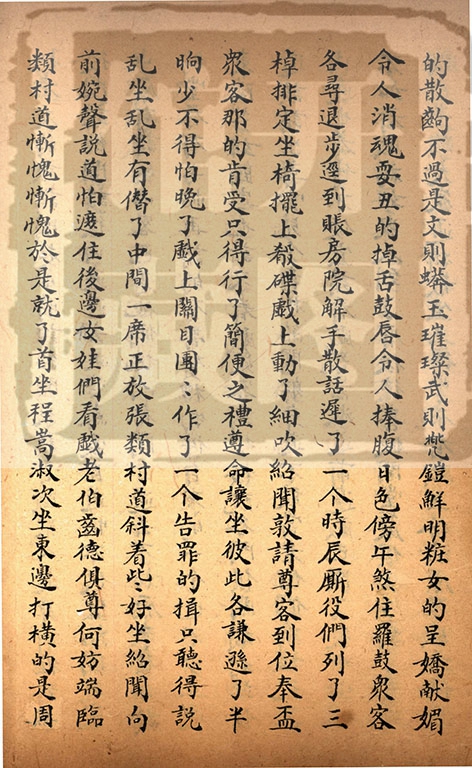 的散齣不過是文則蟒玉璀璨武則鎧鮮明粧女的呈嬌献媚
令人消魂耍丑的掉舌鼓唇令人捧腹日色傍午煞住羅鼓衆客
各尋退步逕到賬房院解手散話遲了一个時辰厮役們列了三
棹排定坐椅擺上殽碟戲上動了細吹紹聞敦請尊客到位奉盃
衆客那的肯受只得行了簡便之禮尊命讓坐彼此各謙遜了半
晌少不得怕晚了戲上關目團〻作了一个告罪的揖只聽得説
乱坐乱坐有僭了中間一席正放張類村道斜着些〻好坐紹聞向
前婉聲説道怕遮住後邊女娃們看戲老伯齒德俱尊何妨端臨
類村道慚愧慚愧於是就了首坐程嵩淑次坐東邊打横的是周